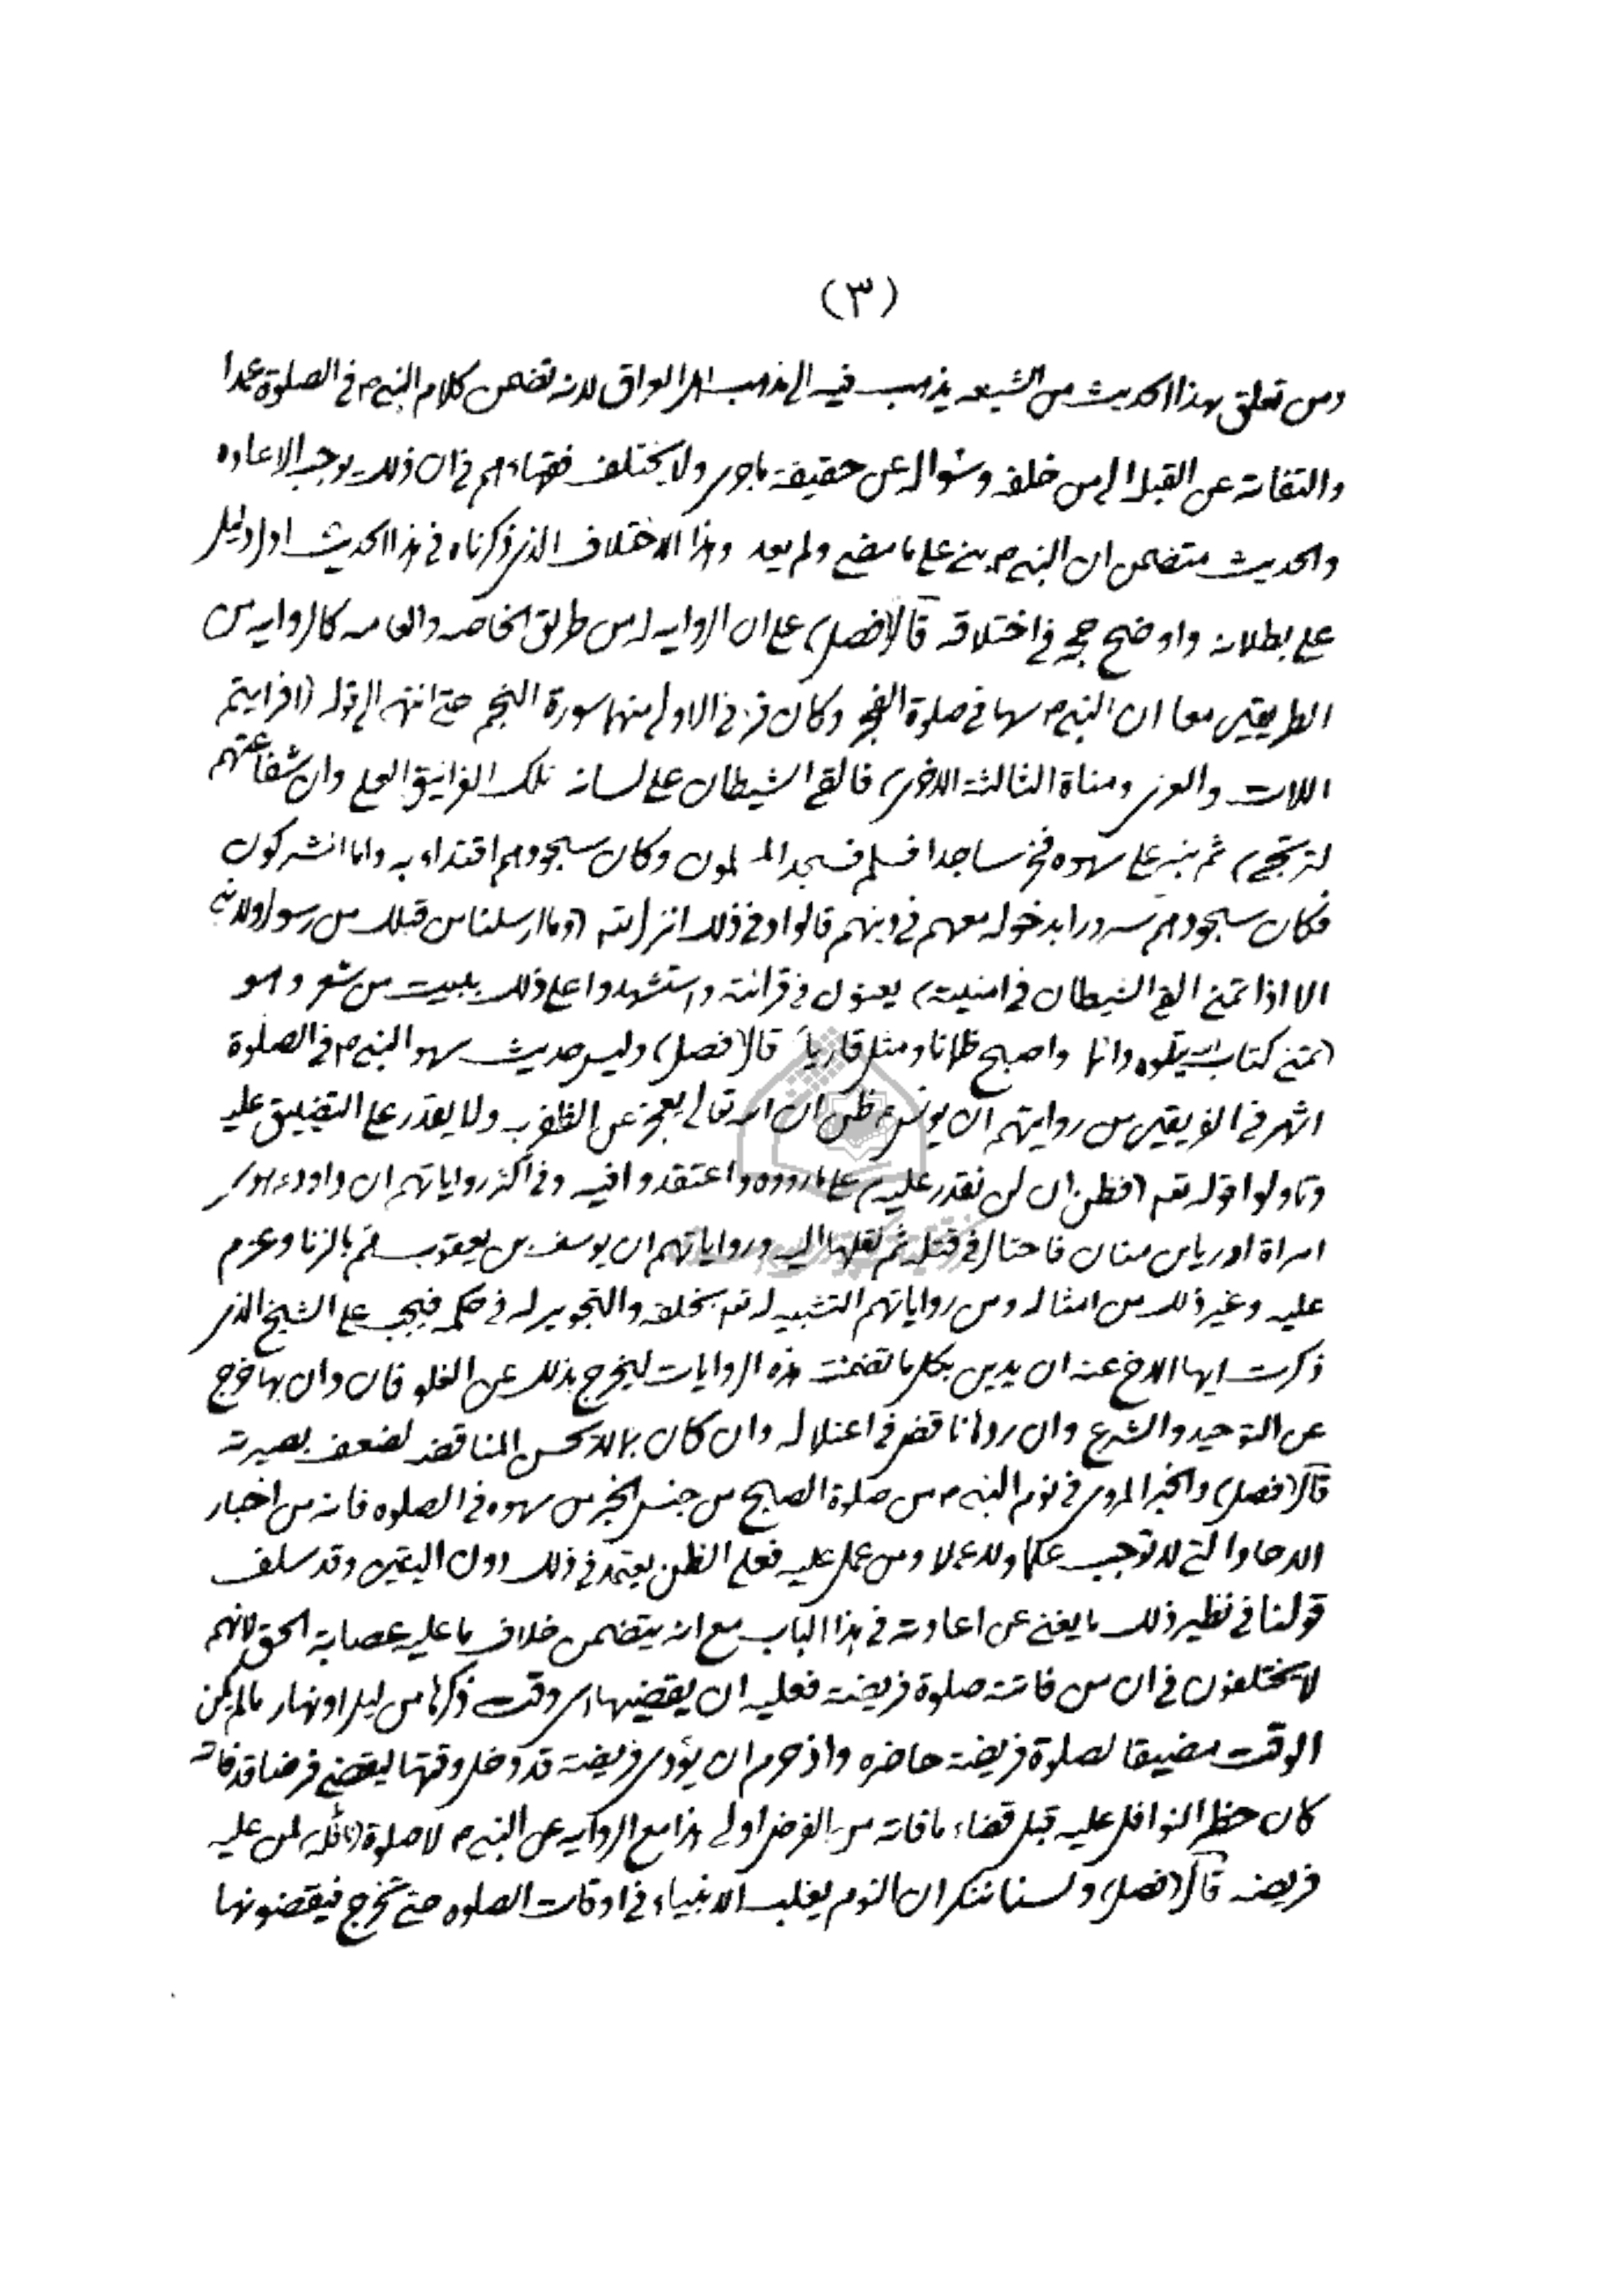 (٣)
ومن تعلق بهذا الحديث من الشيعه يذهب فيه الى مذهب اهل العراق لانه تضمن كلام النبي م في الصلوة عمدا
والتفاته عن القبلة الى من خلفه وسؤاله عن حقيقة ماجرى ولا يختلف فقهاءهم في ان ذلك يوجب الاعاده
والحديث متضمن ان النبي م بنى على ما مضى ولم يعد وهذا الاختلاف الذى ذكرناه في هذا الحديث ادل دليل
على بطلانه واوضح حجه في اختلاقه قال (فصل) على ان الروايه له من طريق الخاصه والعامه كالروايه من
الطريقين معا ان النبي م سها في صلوة الفجر وكان قرء في الاولى منهما سورة النجم حتى انتهى الى قوله (افرايتم
اللات والعزى ومناة الثالثة الاخرى) فالقى الشيطان على لسانه تلك الغرانيق العلى وان شفاعتهم
لترتجى) ثم نبه على سهوه فخر ساجدا فسلم فسجد المسلمون وكان سجودهم اقتداء به واما المشركون
فكان سجودهم سرورا بدخوله معهم في دينهم قالوا وفي ذلك انزل الله (وما ارسلنا من قبلك من رسول ولا نبي
الا اذا تمنى القى الشيطان في امنيته) يعنون في قرائته واستشهدوا على ذلك ببيت من شعر وهو
(تمنى كتاب الله يتلوه دائما واصبح ظمانا ومثل قاريا) قال (فصل) وليس حديث سهو النبي م في الصلوة
اشهر في الفريقين من روايتهم ان يونس ع ظن ان الله تعالى يعجز عن الظفر به ولا يقدر على التضييق عليه
وتاولوا قوله تعه (فظن ان لن نقدر عليه) على ما رووه واعتقدوا فيه وفي اكثر رواياتهم ان داود ع هوى
امراة اوريا بن منان فاحتال في قتله ثم نقلها اليه ورواياتهم ان يوسف بن يعقوب هم بالزنا وعزم
عليه وغير ذلك من امثاله ومن رواياتهم التشبيه له تعه بخلقه والتجوير له في حكمه فيجب على الشيخ الذى
ذكرت ايها الاخ عنه ان يدين بكل ما تضمنته هذه الروايات ليخرج بذلك عن الغلو فان دان بها خرج
عن التوحيد والشرع وان ردها ناقض في اعتلاله وان كان ممن لا يحسن المناقضه لضعف بصيرته
قال (فصل) والخبر المروى في نوم النبي م من صلوة الصبح من جنس الخبر من سهوه في الصلوه فانه من اخبار
الاحاد التي لا توجب علما ولا عملا ومن عمل عليه فعلى الظن يعتمد في ذلك دون اليقين وقد سلف
قولنا في نظير ذلك ما يغنى عن اعادته في هذا الباب مع انه يتضمن خلاف ما عليه عصابة الحق لانهم
لا يختلفون في ان من فاتته صلوة فريضة فعليه ان يقضيها اى وقت ذكرها من ليل او نهار مالم يكن
الوقت مضيقا لصلوة فريضة حاضره واذ حرم ان يؤدى فريضة قد دخل وقتها ليقضى فرضا قد فاته
كان حظر النوافل عليه قبل قضاء ما فاته من الفرض اولى هذا مع الروايه عن النبي م لا صلوة (نافله) لمن عليه
فريضه قال (فصل) ولسنا ننكر ان النوم يغلب الانبياء في اوقات الصلوه حتى تخرج فيقضونها